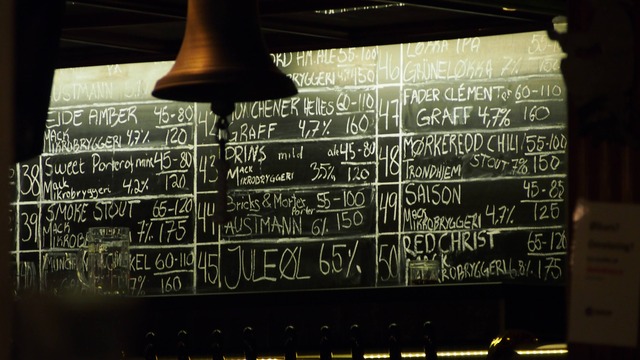 USTMANN 5%
EIDE AMBER 45-80
MACK
MIKROBRYGGERI 4,7% 120
38 Sweet Porter 45-80
Mack
Mikrobryggeri 4,2% 120
39 SMOKE STOUT 65-120
MACK
MIKROB 7% 175
60-110
7% 160
HAM ALE 55-100
BRYGGERI 150
42 MÜNCHENER Helles 60-110
GRAFF 4,7% 160
43 DRINS mild ale 45-80
MACK MIKROBRYGGERI 3,5% 120
44 Bricks & Mortes Porter 55-100
AUSTMANN 6% 150
45 JULEØL 6.5%
46 LØKKA IPA
GRÜNELØKKA 7%
47 FADER CLEMENT 60-110
GRAFF 4,7% 160
48 MØRKEREDD CHILI 55-100
TRONDHJEM STOUT 7% 150
49 SAISON 45-85
MACK
MIKROBRYGGERI 4.7% 125
50 REDCHRIST 65-120
ROBRYGGERI 6,8% 175